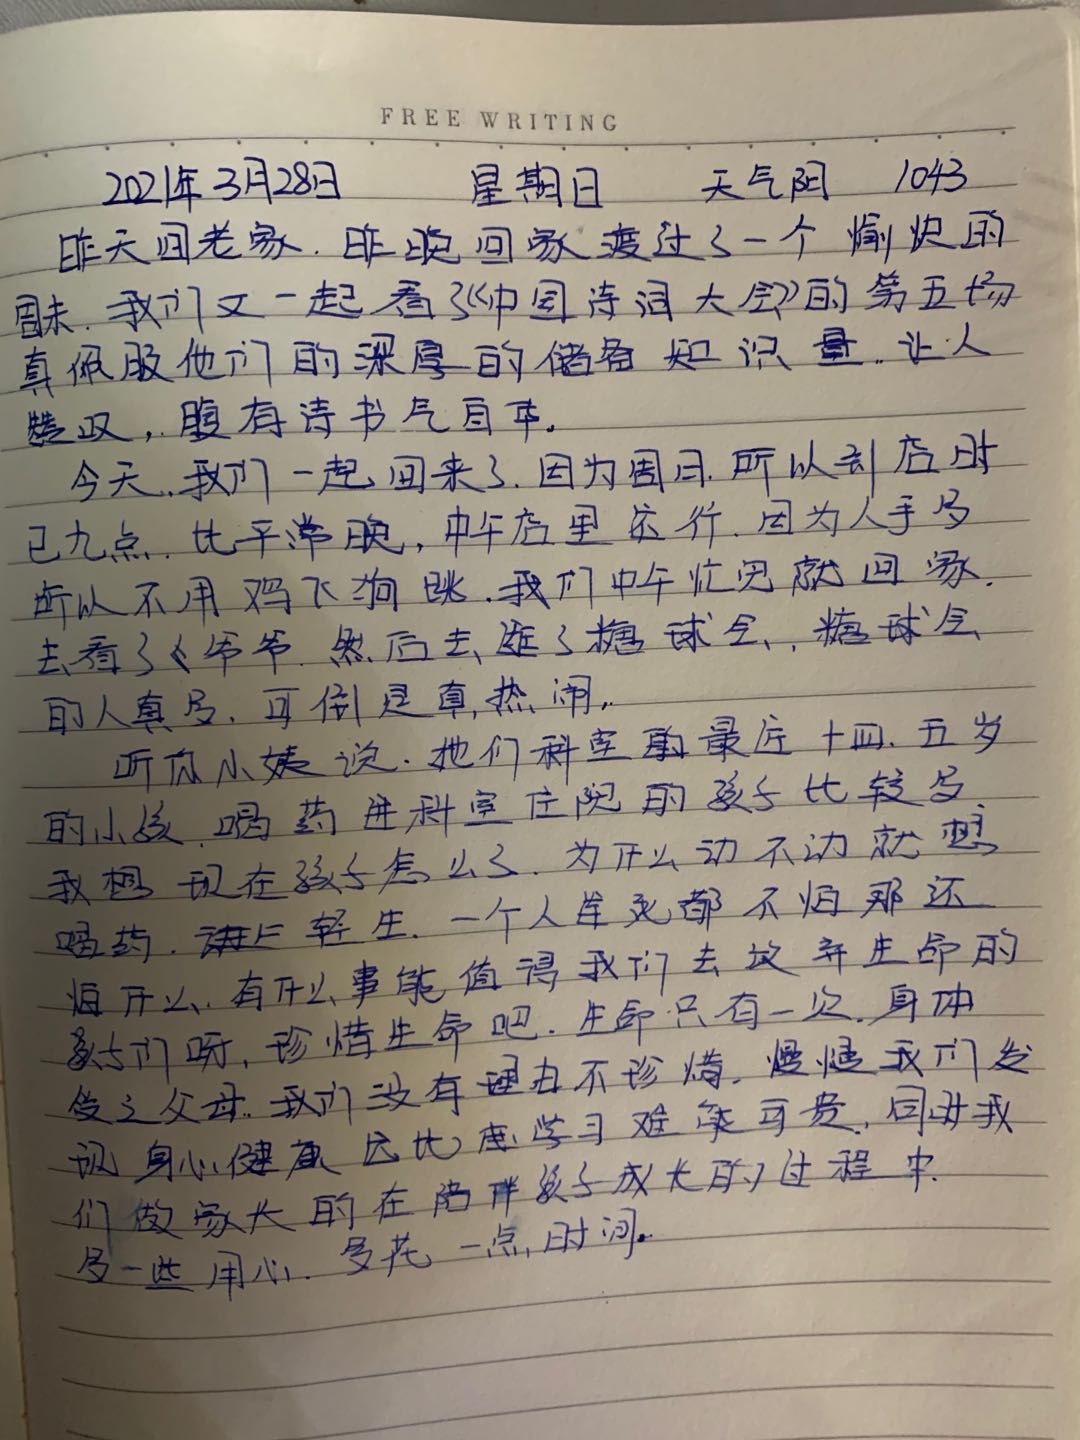 FREE WRITING
2021年3月28日 星期日 天气阴 1043
昨天回老家.昨晚回家度过了一个愉快的
周末.我们又一起看了《中国诗词大会》的第五场
真佩服他们的深厚的储备知识量.让人
赞叹,腹有诗书气自华.
今天.我们一起回来了.因为周日.所以到店时
已九点.比平常晚,中午店里还行.因为人手多
所以不用鸡飞狗跳.我们中午忙完就回家.
去看了爷爷.然后去逛了糖球会.糖球会
的人真多.可倒是真热闹.
听你小姨说.她们科室最近十四.五岁
的小孩.喝药进科室住院的孩子比较多
我想现在孩子怎么了.为什么动不动就想
喝药.轻生.一个人连死都不怕那还
怕什么.有什么事能值得我们去放弃生命的
孩子们呀,珍惜生命吧.生命只有一次.身体
发之父母.我们没有理由不珍惜.慢慢我们发
现身心健康远比学习难能可贵.同时我
们做家长的在陪伴孩子成长的过程中.
多一些用心.多花一点时间.